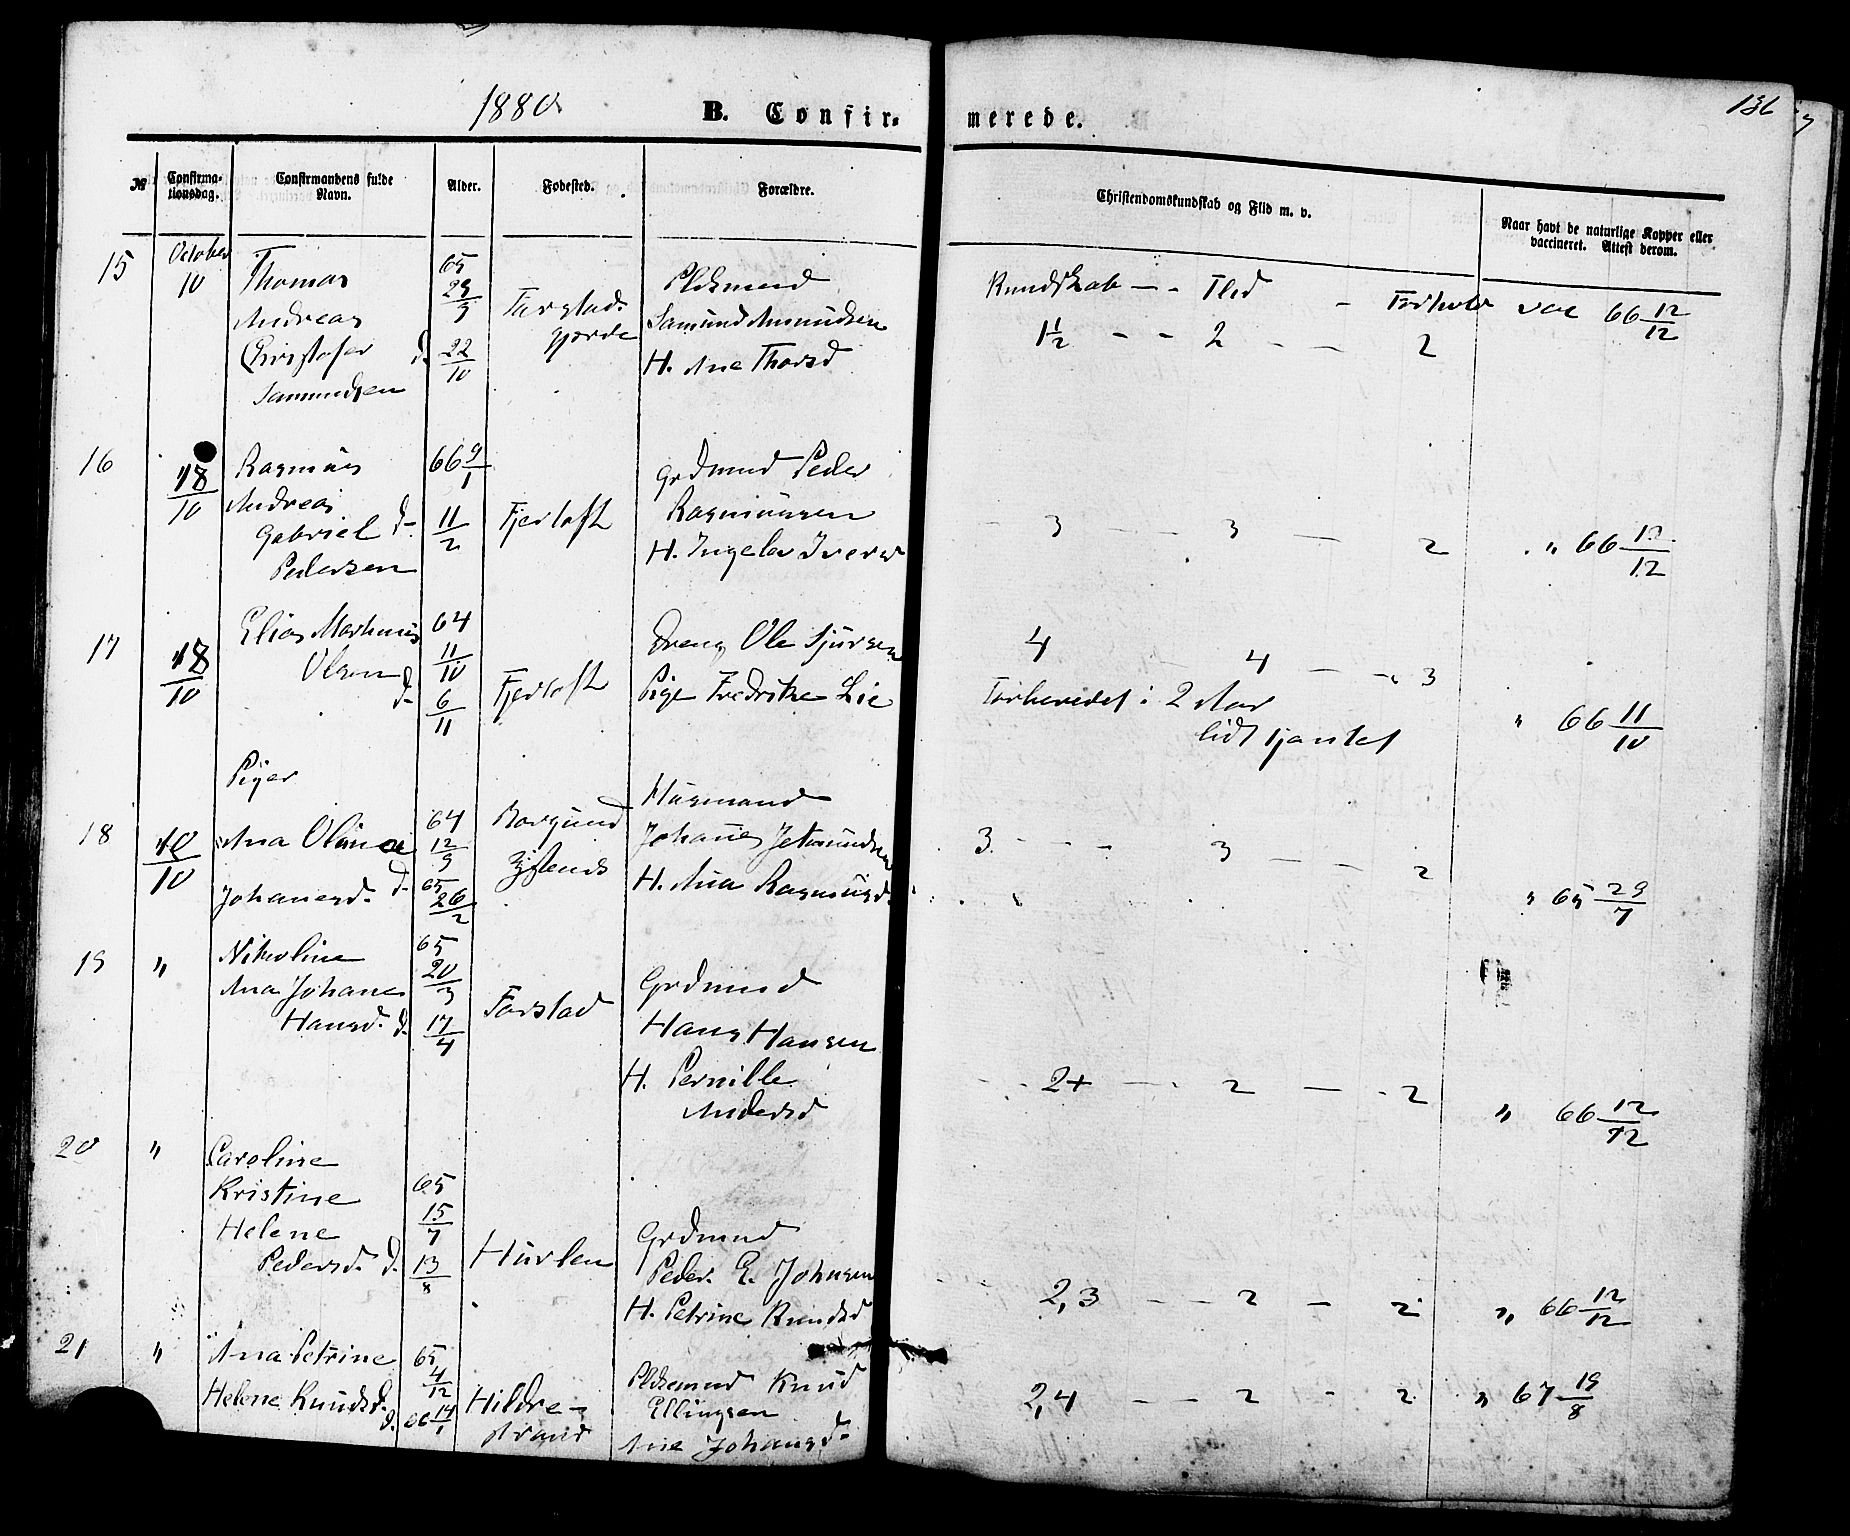 1880
B. Confirmerede.
136
№
Confirmationsdag.
Confirmandens fulde Navn.
Alder.
Fødested.
Forældre.
Christendomskundskab og Flid m. v.
Naar havt de naturlige Kopper eller vaccineret. Attest derom.
15
October
10
Thomas
Andreas
Christofer d.
Samundsen
65
29/9
22/10
Farstad-
gjerde
Pldsmand
Samund Amundsen
H. Ane Thorsd
Kundskab - - Flid - Forhold
1 1/2 - - 2 - - 2
vac 66 12/12
16
18/10
Rasmus
Andreas
Gabriel d.
Pedersen
66 9/1
11/2
Fjertoft
Grdmand Peder
Rasmussen
H. Ingeba Iversd
3 - 3 - 2
" 66 12/12
17
18/10
Elias Mathias
Olsen d.
64
11/10
6/11
Fjertoft
Dreng Ole Sjursen
Pige Fredrikke Lie
4 - 4 - - 3
Forberedet i 2 Aar
lidt tjantet
" 66 11/10
Piger
18
10/10
Ana Olina
Johanesd. d.
64
12/9
65
26/2
Borgund
Johanes Jetmundsen
Husmand
H. Ana Rasmusd.
3 - - - 3 - - 2
" 65 29/7
19
"
Nikoline
Ana Johane
Hansd. d.
65
20/3
17/4
Farstad
Grdmand
Hans Hansen
H. Pernille
Andersd
2+ - 2 - 2
" 66 12/12
20
"
Caroline
Kristine
Helene
Pedersd. d.
65
15/7
13/8
Hurlen
Grdmand
Peder E. Johnsen
H. Petrine Knudsd
2,3 - - 2 - 2
" 66 12/12
21
"
Ana Petrine
Helene Knudsd.
d.
65
4/12
66 14/1
Hildre-
strand
Pldsmand Knud
Ellingsen
Ane Johansd.
2,4 - - 2 - 2
" 67 19/8